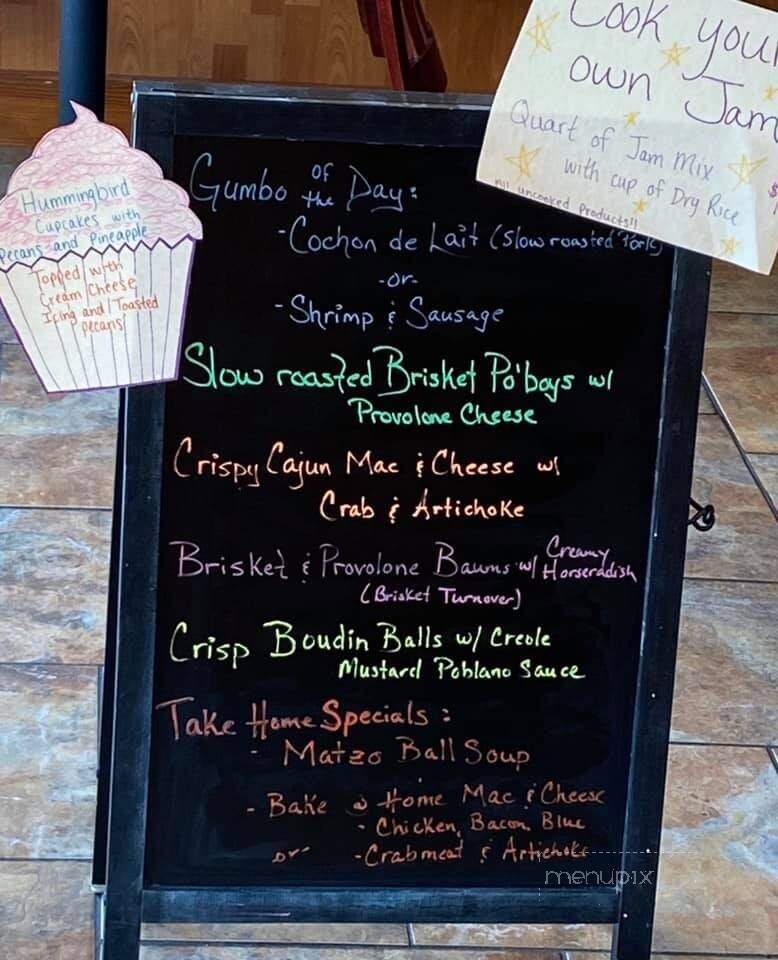 Cook your
own Jam
Quart of Jam Mix
with cup of Dry Rice
uncooked Products!!
Hummingbird
Cupcakes with
Pecans and Pineapple
Topped with
Cream Cheese
Icing and Toasted
pecans
Gumbo of the Day:
-Cochon de Lait (Slow roasted Pork)
-or-
-Shrimp & Sausage
Slow roasted Brisket Po'boys w/
Provolone Cheese
Crispy Cajun Mac & Cheese w/
Crab & Artichoke
Brisket & Provolone Baums w/ Creamy Horseradish
(Brisket Turnover)
Crisp Boudin Balls w/ Creole
Mustard Poblano Sauce
Take Home Specials:
- Matzo Ball Soup
- Bake @ Home Mac & Cheese
- Chicken, Bacon, Blue
or -Crabmeat & Artichoke
menupix